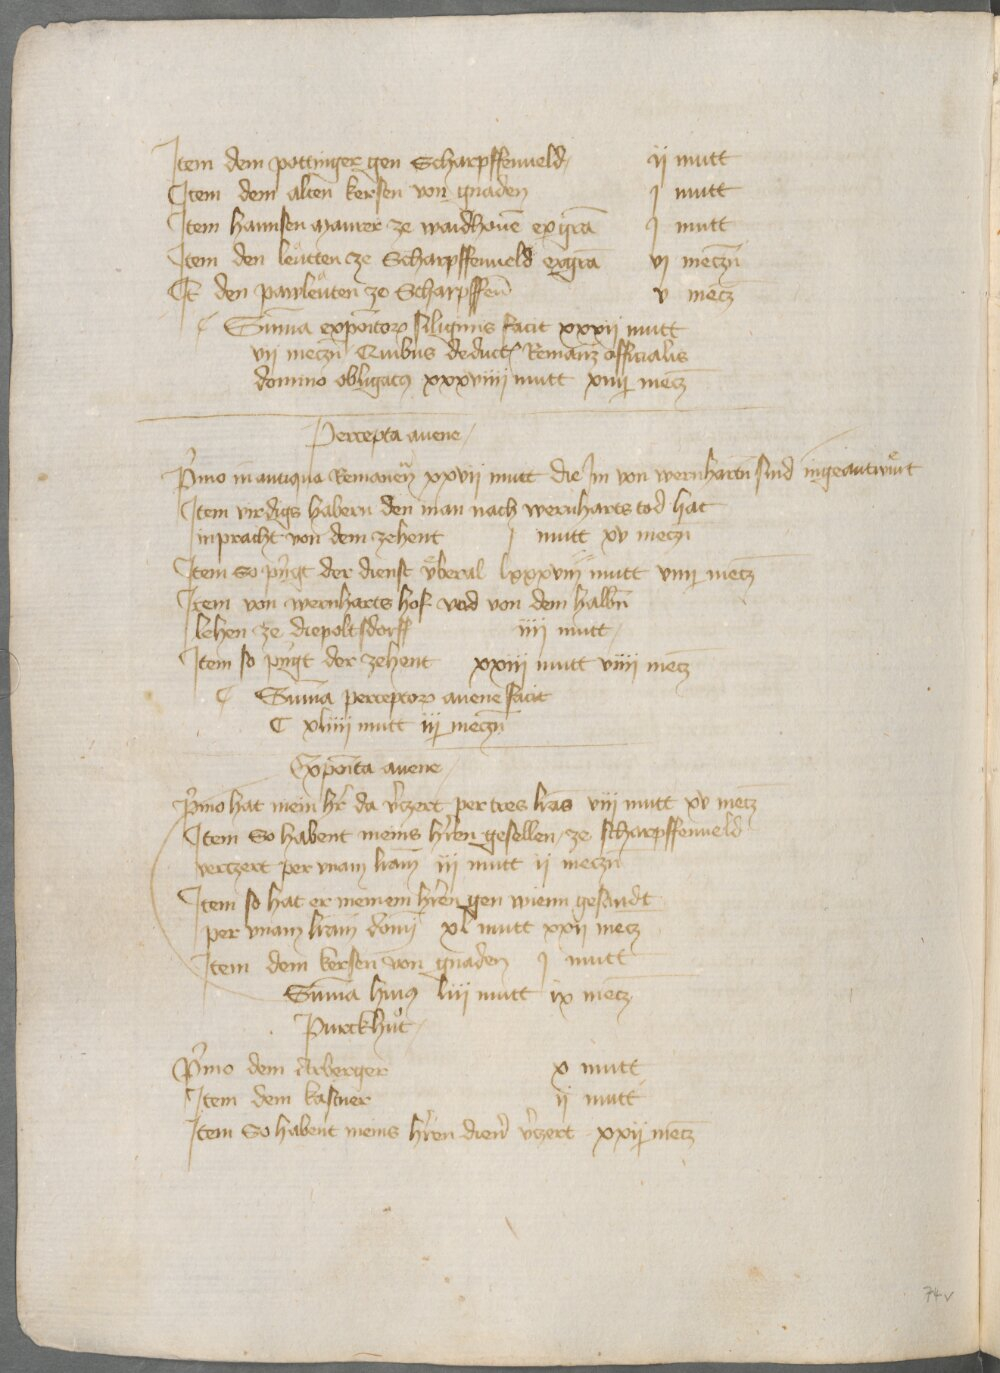 Item dem pottinger gen Scharpffenueld ii mutt
Item dem alten kersen von gnaden j mutt
Item hannsen maurer ze waidhouē ex grā j mutt
Item den leutten ze Scharpffenueld ex grā vj meczn̄
It̄ den pawleuten ze Scharpffen̄ v mecz
Sum̄a expoītor siliginis facit xxxii mutt
vij meczn̄ Quibus deduct Remanz officialis
domino obligatus xxxviiii mutt xiiij mecz
Percepta auene
P̄mo in antiqua Remanen̄ xxvii mutt die Im von wernhartn̄ sind ingeantwurt
Item virdigs habern den man nach wernharts tod hat
inpracht von dem zehent j mutt xv meczn̄
Item So pringt der dienst vberal lxxxviii mutt viiij mecz
Item von wernharts hof vnd von dem halbn̄
lehen ze diepoltsdorff iiii mutt
Item so pringt der zehent xxiii mutt viiii mecz
Sum̄a perceptor auene facit
C xliiii mutt iij meczn̄
Expoīta auene
P̄mo hat mein hr̄ da v̄czert per tres lr̄as viij mutt xv mecz
Item So habent meins hr̄en gesellen ze scharpffenueld
verczert per vnam lr̄am iii mutt ii meczn̄
Item so hat er meinem hr̄en gen wienn gesandt
per vnam lr̄am dom̄ xl mutt xxii mecz
Item dem kersen von gnaden j mutt
Sum̄a huius liii mutt ix mecz
Purckhut
P̄mo dem Arberger x mutt
Item dem kastner ij mutt
Item So habent meins hr̄en dien̄ v̄czert xxij mecz
74v